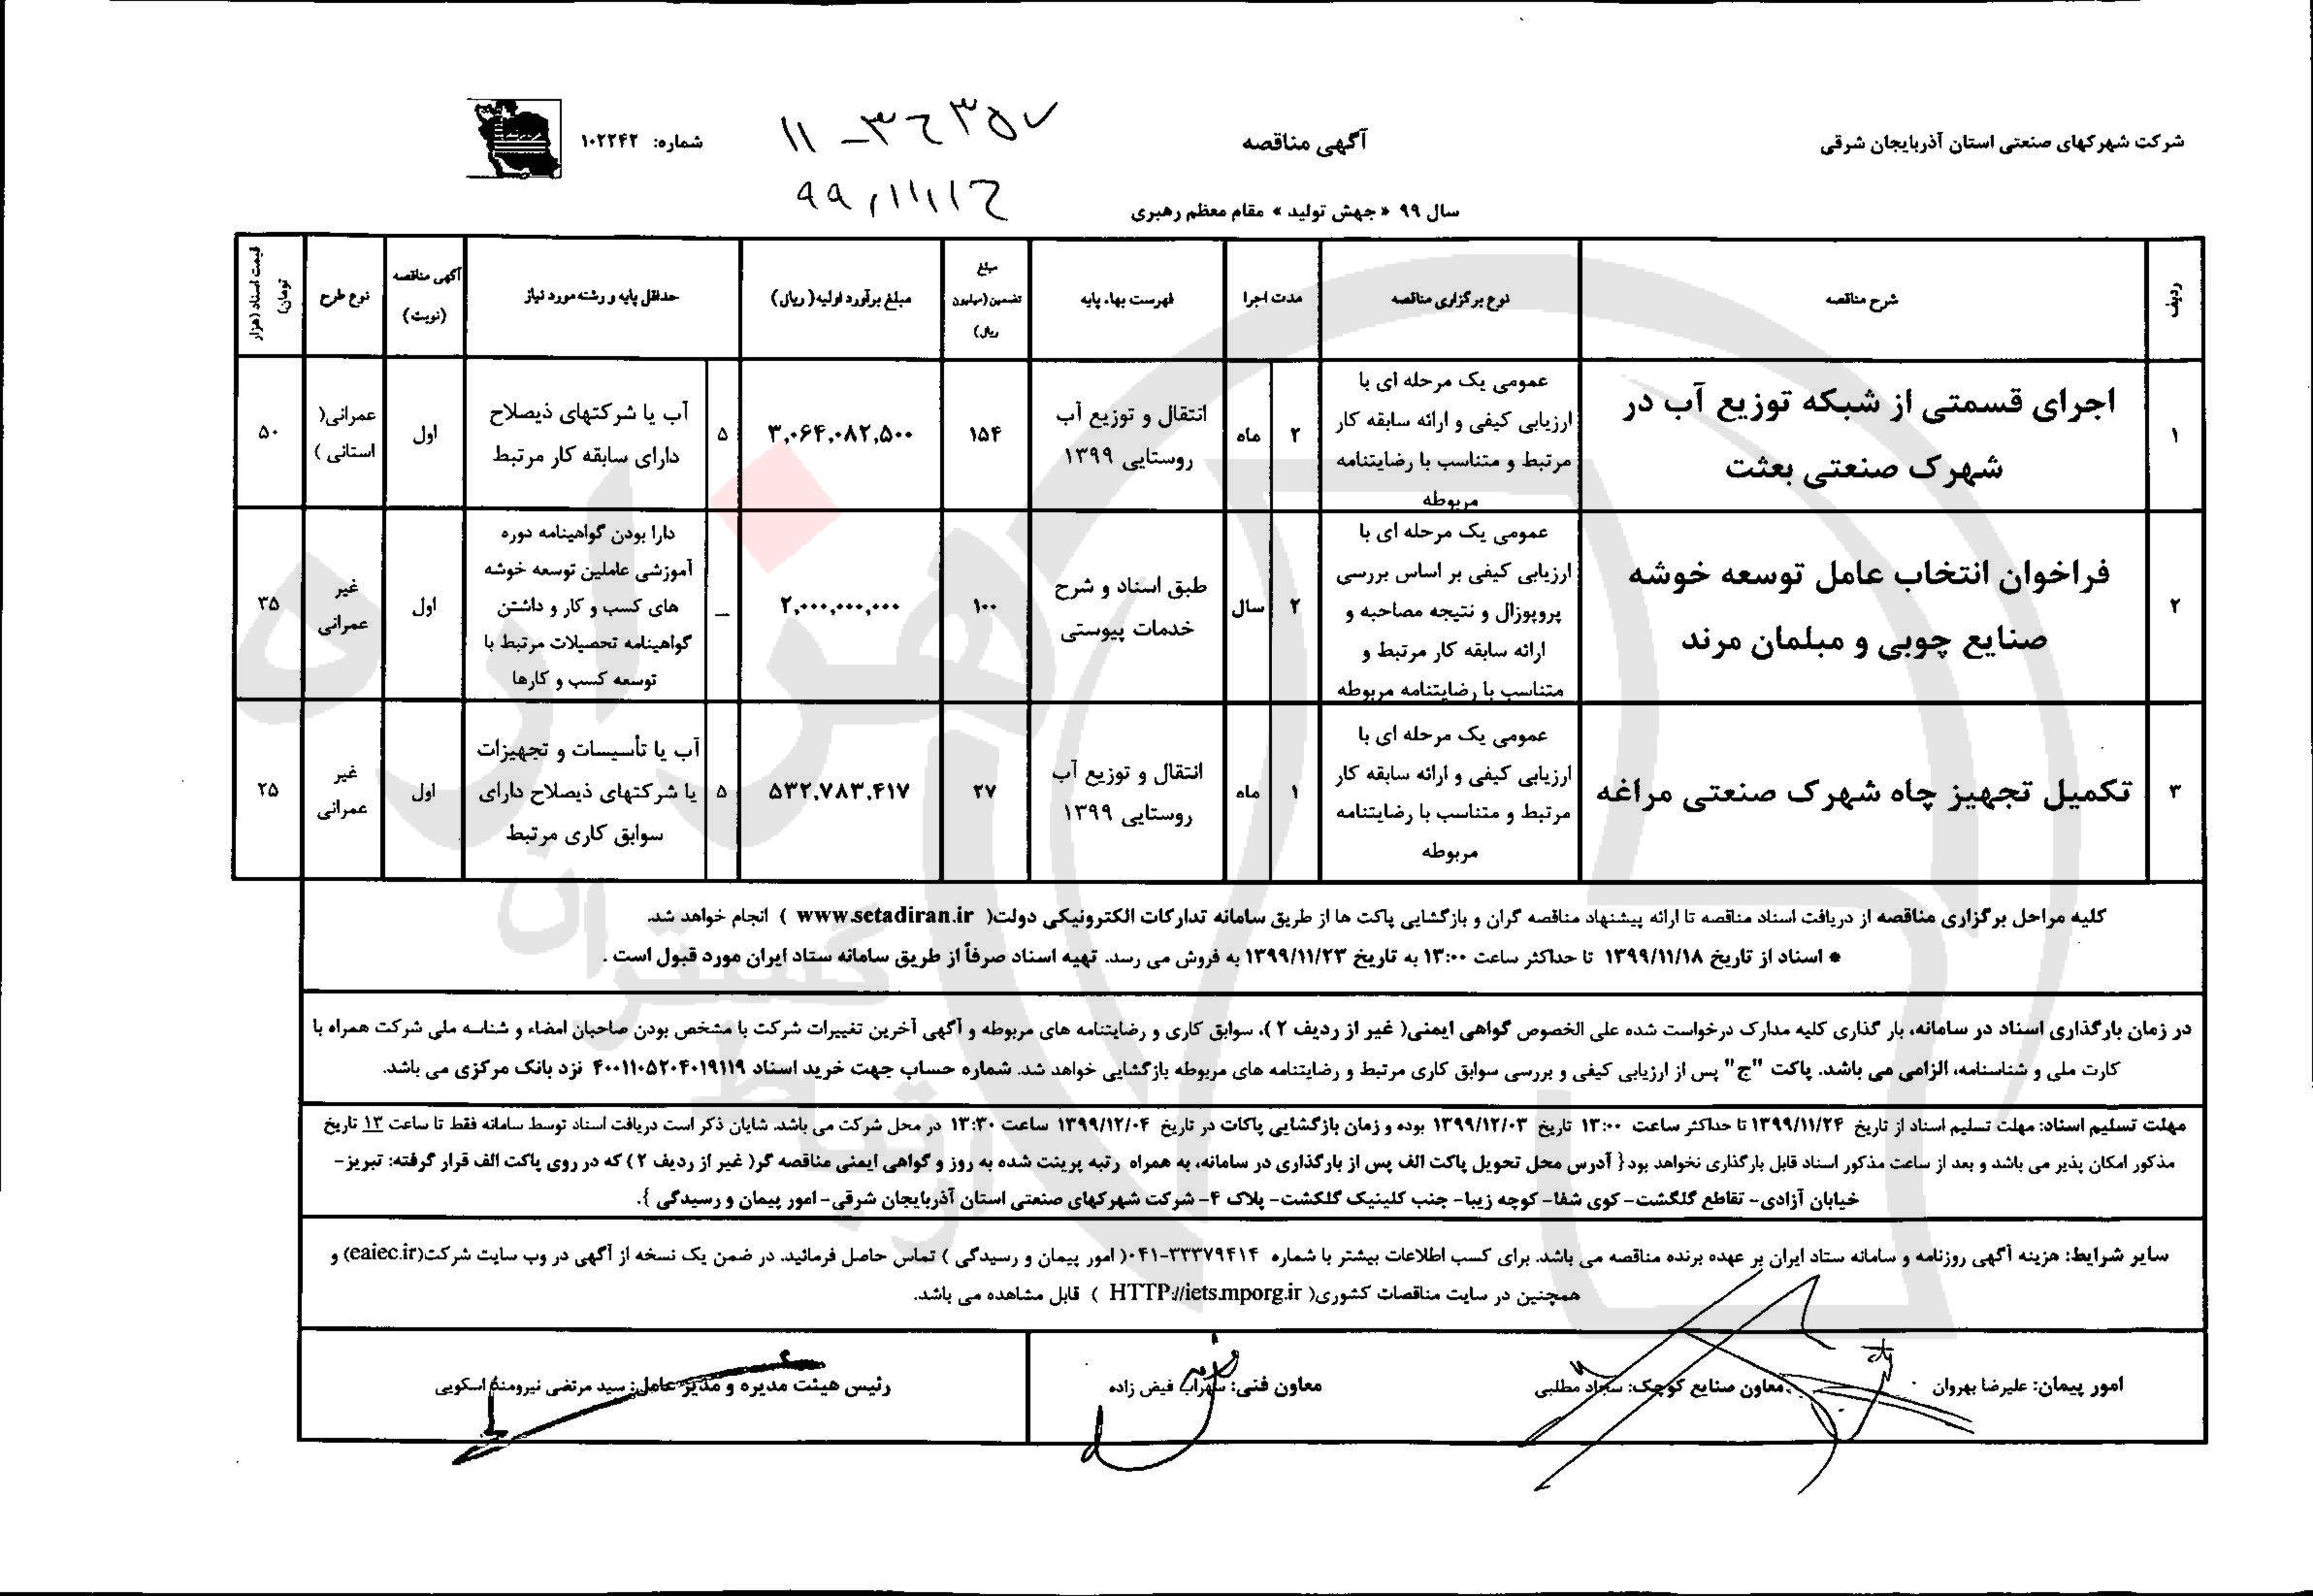 شرکت شهرکهای صنعتی استان آذربایجان شرقی
آگهی مناقصه
شماره: ۱۰۲۲۴۲
سال ۹۹ « جهش تولید » مقام معظم رهبری
ردیف
شرح مناقصه
نوع برگزاری مناقصه
مدت اجرا
فهرست بهاء پایه
مبلغ
تضمین (میلیون
ریال)
مبلغ برآورد اولیه( ریال)
حداقل پایه و رشته مورد نیاز
آگهی مناقصه
(نوبت)
نوع طرح
قیمت اسناد (هزار
تومان)
۱
اجرای قسمتی از شبکه توزیع آب در
شهرک صنعتی بعثت
عمومی یک مرحله ای با
ارزیابی کیفی و ارائه سابقه کار
مرتبط و متناسب با رضایتنامه
مربوطه
۲
ماه
انتقال و توزیع آب
روستایی ۱۳۹۹
۱۵۴
۳,۰۶۴,۰۸۲,۵۰۰
۵
آب یا شرکتهای ذیصلاح
دارای سابقه کار مرتبط
اول
عمرانی(
استانی )
۵۰
۲
فراخوان انتخاب عامل توسعه خوشه
صنایع چوبی و مبلمان مرند
عمومی یک مرحله ای با
ارزیابی کیفی بر اساس بررسی
پروپوزال و نتیجه مصاحبه و
ارائه سابقه کار مرتبط و
متناسب با رضایتنامه مربوطه
۲
سال
طبق اسناد و شرح
خدمات پیوستی
۱۰۰
۲,۰۰۰,۰۰۰,۰۰۰
_
دارا بودن گواهینامه دوره
آموزشی عاملین توسعه خوشه
های کسب و کار و داشتن
گواهینامه تحصیلات مرتبط با
توسعه کسب و کارها
اول
غیر
عمرانی
۳۵
۳
تکمیل تجهیز چاه شهرک صنعتی مراغه
عمومی یک مرحله ای با
ارزیابی کیفی و ارائه سابقه کار
مرتبط و متناسب با رضایتنامه
مربوطه
۱
ماه
انتقال و توزیع آب
روستایی ۱۳۹۹
۲۷
۵۳۲,۷۸۳,۴۱۷
۵
آب یا تأسیسات و تجهیزات
یا شرکتهای ذیصلاح دارای
سوابق کاری مرتبط
اول
غیر
عمرانی
۲۵
کلیه مراحل برگزاری مناقصه از دریافت اسناد مناقصه تا ارائه پیشنهاد مناقصه گران و بازگشایی پاکت ها از طریق سامانه تدارکات الکترونیکی دولت( www.setadiran.ir ) انجام خواهد شد.
* اسناد از تاریخ ۱۳۹۹/۱۱/۱۸ تا حداکثر ساعت ۱۳:۰۰ به تاریخ ۱۳۹۹/۱۱/۲۳ به فروش می رسد. تهیه اسناد صرفاً از طریق سامانه ستاد ایران مورد قبول است .
در زمان بارگذاری اسناد در سامانه، بار گذاری کلیه مدارک درخواست شده علی الخصوص گواهی ایمنی( غیر از ردیف ۲ )، سوابق کاری و رضایتنامه های مربوطه و آگهی آخرین تغییرات شرکت با مشخص بودن صاحبان امضاء و شناسه ملی شرکت همراه با
کارت ملی و شناسنامه، الزامی می باشد. پاکت "ج" پس از ارزیابی کیفی و بررسی سوابق کاری مرتبط و رضایتنامه های مربوطه بازگشایی خواهد شد. شماره حساب جهت خرید اسناد ۴۰۰۱۱۰۵۲۰۴۰۱۹۱۱۹ نزد بانک مرکزی می باشد.
مهلت تسلیم اسناد: مهلت تسلیم اسناد از تاریخ ۱۳۹۹/۱۱/۲۴ تا حداکثر ساعت ۱۳:۰۰ تاریخ ۱۳۹۹/۱۲/۰۳ بوده و زمان بازگشایی پاکات در تاریخ ۱۳۹۹/۱۲/۰۴ ساعت ۱۳:۳۰ در محل شرکت می باشد. شایان ذکر است دریافت اسناد توسط سامانه فقط تا ساعت ۱۳ تاریخ
مذکور امکان پذیر می باشد و بعد از ساعت مذکور اسناد قابل بارگذاری نخواهد بود{ آدرس محل تحویل پاکت الف پس از بارگذاری در سامانه، به همراه رتبه پرینت شده به روز و گواهی ایمنی مناقصه گر( غیر از ردیف ۲ ) که در روی پاکت الف قرار گرفته: تبریز-
خیابان آزادی- تقاطع گلگشت- کوی شفا- کوچه زیبا- جنب کلینیک گلگشت- پلاک ۴- شرکت شهرکهای صنعتی استان آذربایجان شرقی- امور پیمان و رسیدگی }.
سایر شرایط: هزینه آگهی روزنامه و سامانه ستاد ایران بر عهده برنده مناقصه می باشد. برای کسب اطلاعات بیشتر با شماره ۰۴۱-۳۳۳۷۹۴۱۴( امور پیمان و رسیدگی ) تماس حاصل فرمائید. در ضمن یک نسخه از آگهی در وب سایت شرکت(eaiec.ir) و
همچنین در سایت مناقصات کشوری( HTTP://iets.mporg.ir ) قابل مشاهده می باشد.
امور پیمان: علیرضا بهروان
معاون صنایع کوچک: سجاد مطلبی
معاون فنی: سهراب فیض زاده
رئیس هیئت مدیره و مدیر عامل: سید مرتضی نیرومند اسکویی